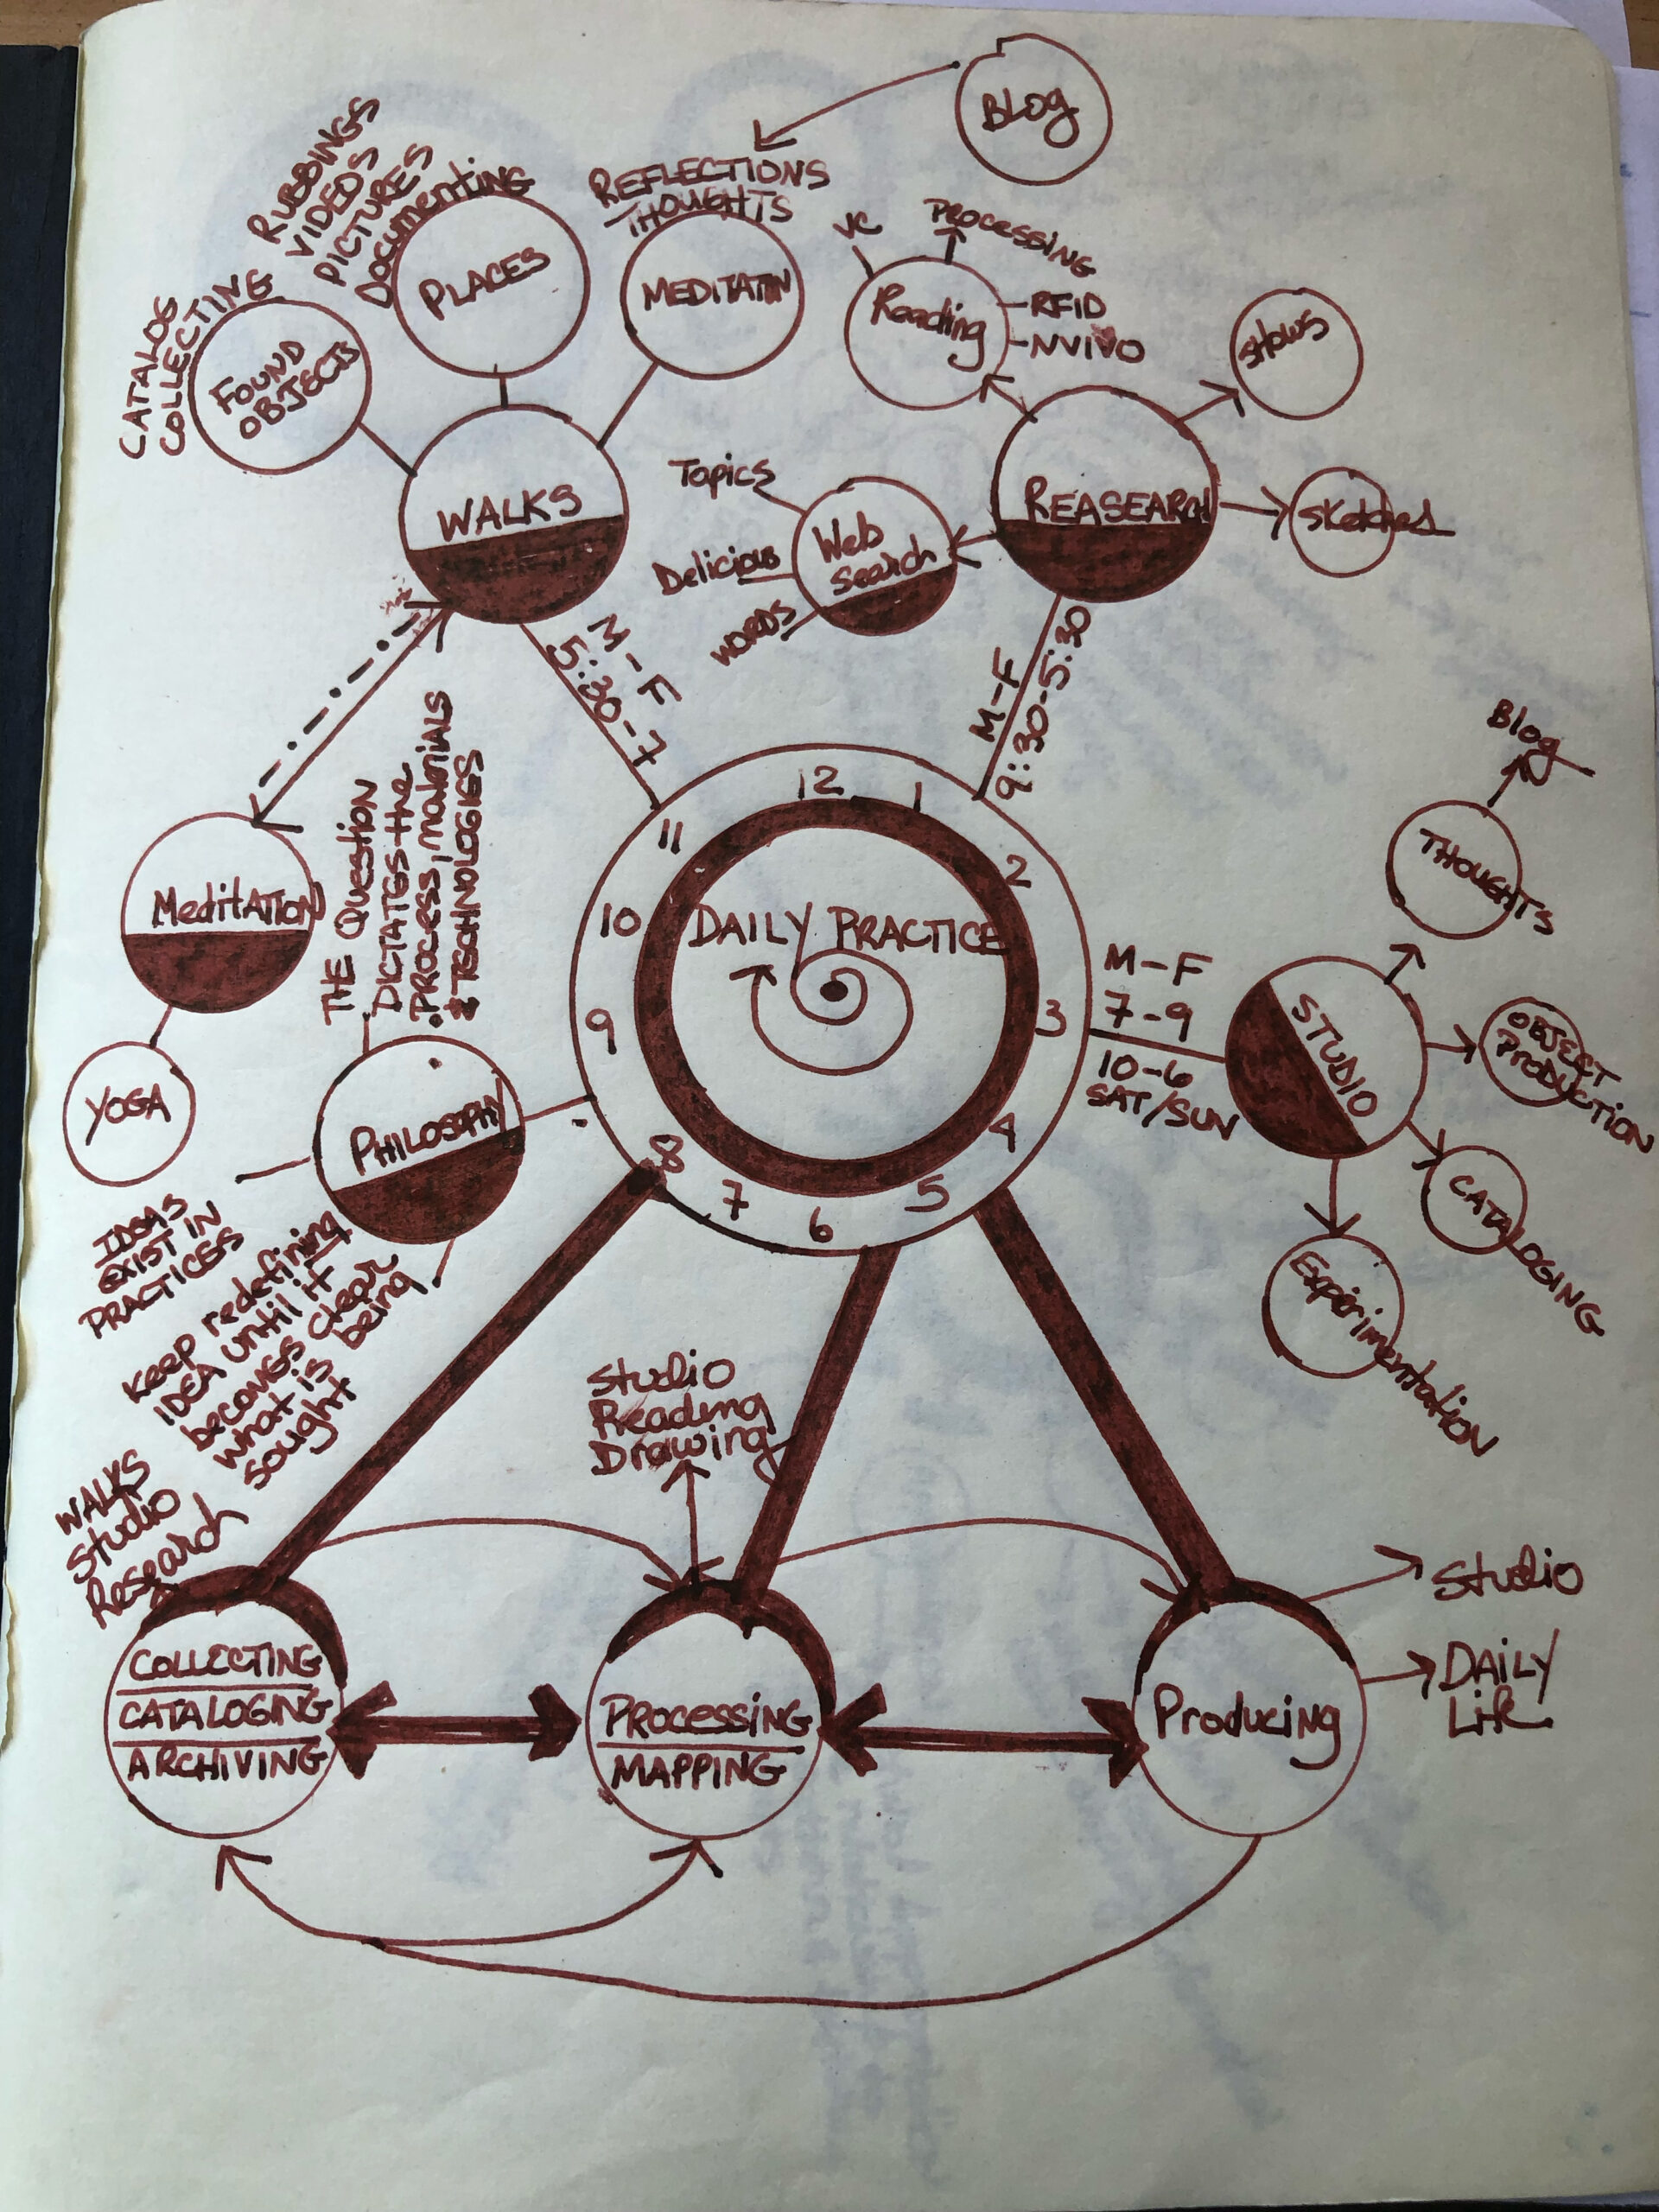 BLOG
RUBBINGS
VIDEOS
PICTURES
DOCUMENTING
PLACES
REFLECTIONS
THOUGHTS
MEDITATIN
CATALOG
COLLECTING
FOUND
OBJECTS
VC
PROCESSING
Reading
RFID
NVIVO
SHOWS
WALKS
REASEARCH
Sketches
Topics
Delicious
WORDS
Web
Search
M-F
5:30-7
M-F
9:30-5:30
Meditation
YOGA
THE QUESTION
DICTATES the
PROCESS, materials
& TECHNOLOGIES
PHILOSOPHY
IDEAS
EXIST IN
PRACTICES
Keep redefining
IDEA until it
becomes clear
what is being
sought
12
1
2
3
4
5
6
7
8
9
10
11
DAILY PRACTICE
M-F
7-9
10-6
SAT/SUN
STUDIO
Blog
THOUGHTS
OBJECT
PRODUCTION
CATALOGING
Experimentation
WALKS
Studio
Research
Studio
Reading
Drawing
COLLECTING
CATALOGING
ARCHIVING
PROCESSING
MAPPING
Producing
Studio
DAILY
Life